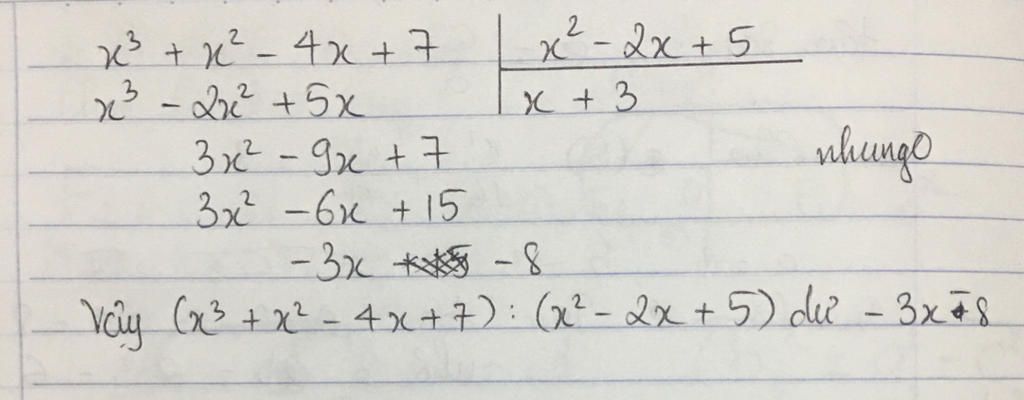 x³ + x² - 4x + 7 | x² - 2x + 5
x³ - 2x² + 5x | x + 3
3x² - 9x + 7
nhung0
3x² - 6x + 15
-3x - 8
Vậy (x³ + x² - 4x + 7) : (x² - 2x + 5) dư - 3x - 8